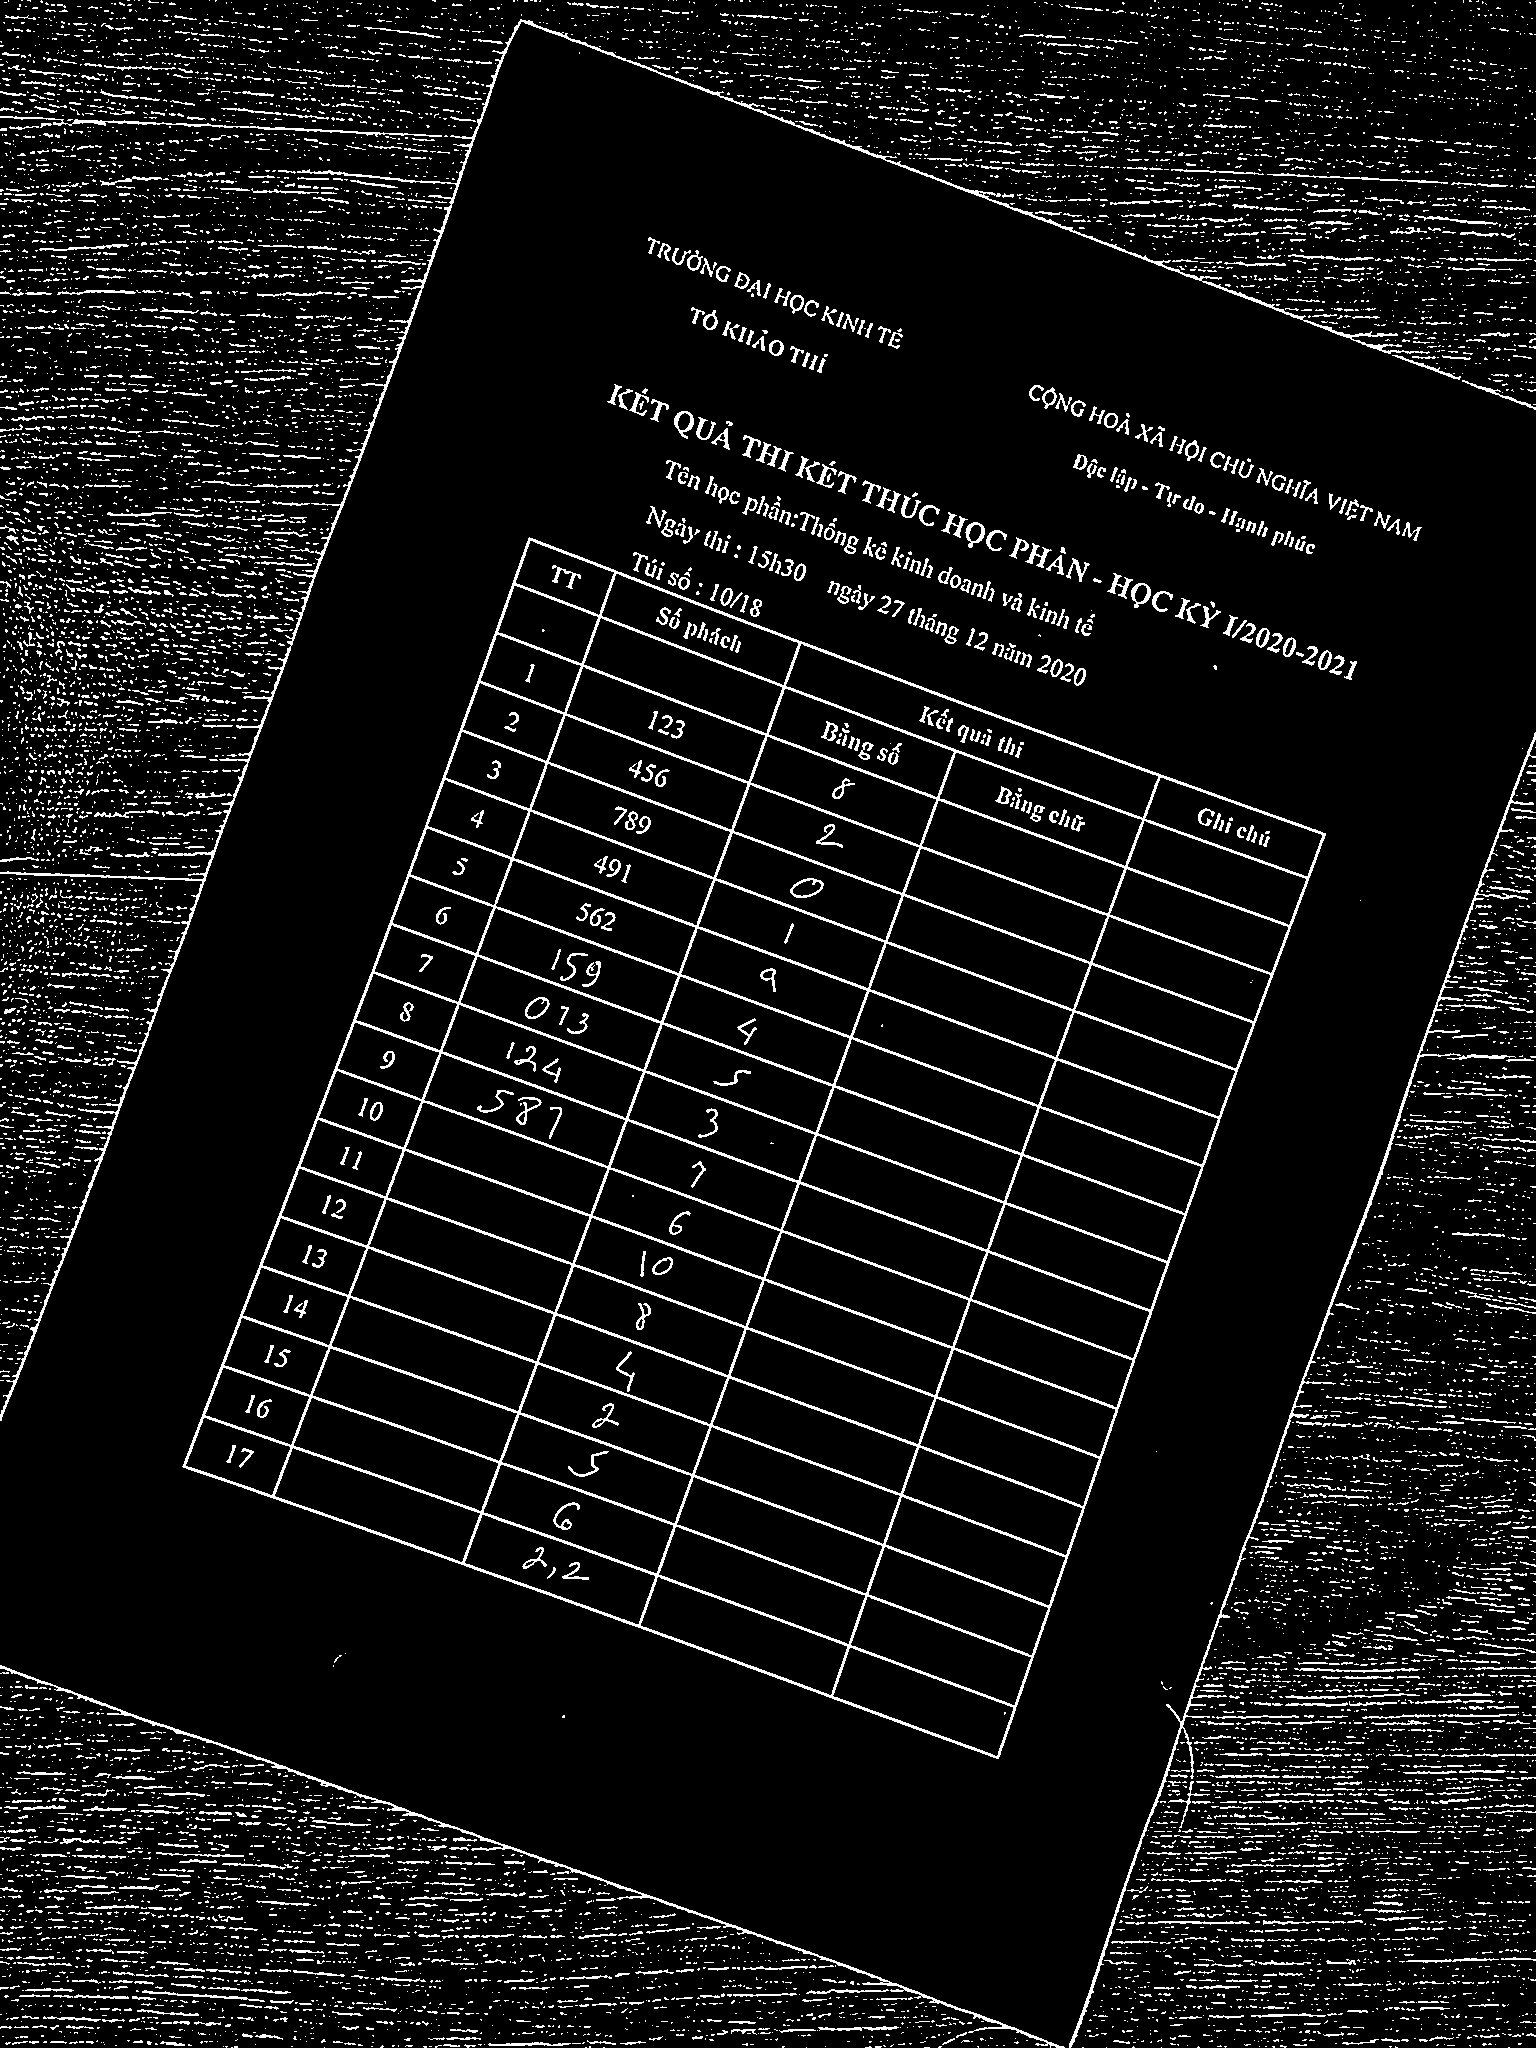 TRƯỜNG ĐẠI HỌC KINH TẾ
TỔ KHẢO THÍ
CỘNG HOÀ XÃ HỘI CHỦ NGHĨA VIỆT NAM
Độc lập - Tự do - Hạnh phúc
KẾT QUẢ THI KẾT THÚC HỌC PHẦN - HỌC KỲ I/2020-2021
Tên học phần:Thống kê kinh doanh và kinh tế
Ngày thi : 15h30 ngày 27 tháng 12 năm 2020
Túi số : 10/18
TT Số phách Kết quả thi Ghi chú
Bằng số Bằng chữ
1 123 8
2 456 2
3 789 0
4 491 1
5 562 9
6 159 4
7 073 5
8 124 3
9 587 7
10 6
11 10
12 8
13 4
14 2
15 5
16 6
17 2,2